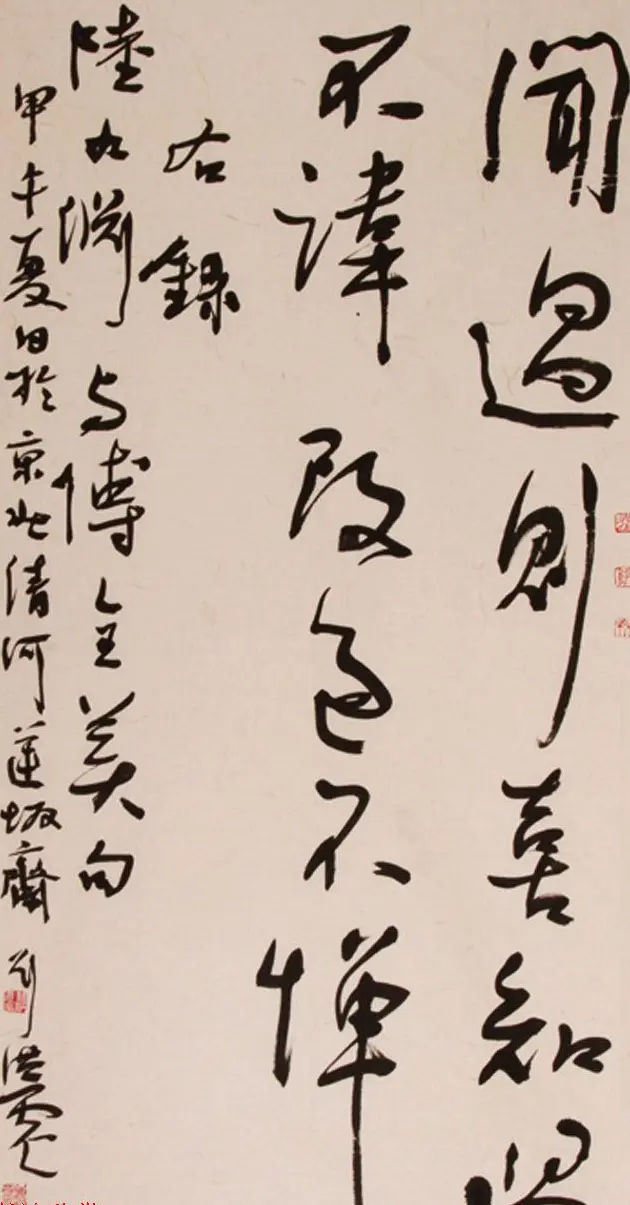 聞過則喜知過
不諱改過不惮
右錄
陸九渊与傅全美句
甲午夏日於京北清河蓮坂齋 刘洪彪